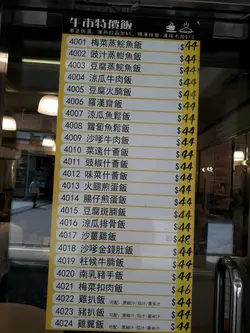 午市特價飯
4001 梅菜蒸鯇魚飯 $44
4002 豉汁蒸鯇魚飯 $44
4003 豆腐蒸鯇魚飯 $44
4004 涼瓜牛肉飯 $44
4005 豆腐火腩飯 $44
4006 羅漢齋飯 $44
4007 涼瓜魚鬆飯 $44
4008 蘿蔔魚鬆飯 $44
4009 沙嗲牛肉飯 $44
4010 菜遠什薈飯 $44
4011 豉椒什薈飯 $44
4012 味菜什薈飯 $44
4013 火腿煎蛋飯 $44
4014 腸仔煎蛋飯 $44
4015 豆腐斑腩飯 $44
4016 涼瓜排骨飯 $44
4017 沙薑雞飯 $48
4018 沙嗲金錢肚飯 $44
4019 柱侯牛腩飯 $44
4020 南乳豬手飯 $44
4021 梅菜扣肉飯 $46
4022 雞扒飯 $44
4023 豬扒飯 $44
4024 雞翼飯 $44